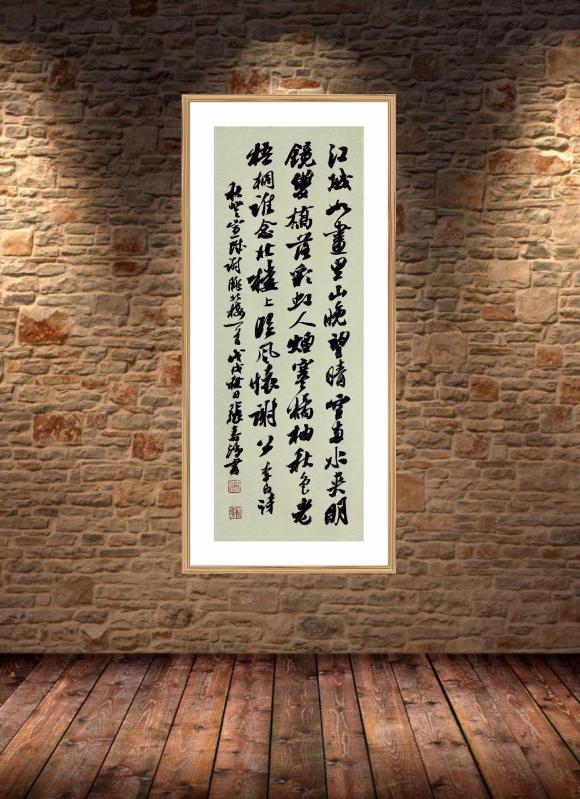 江城如畫里山晚望晴空兩水夾明
鏡雙橋落彩虹人煙寒橘柚秋色老
梧桐誰念北樓上臨風懷謝公李白詩
秋登宣城謝朓北樓一首戊戌秋日張書